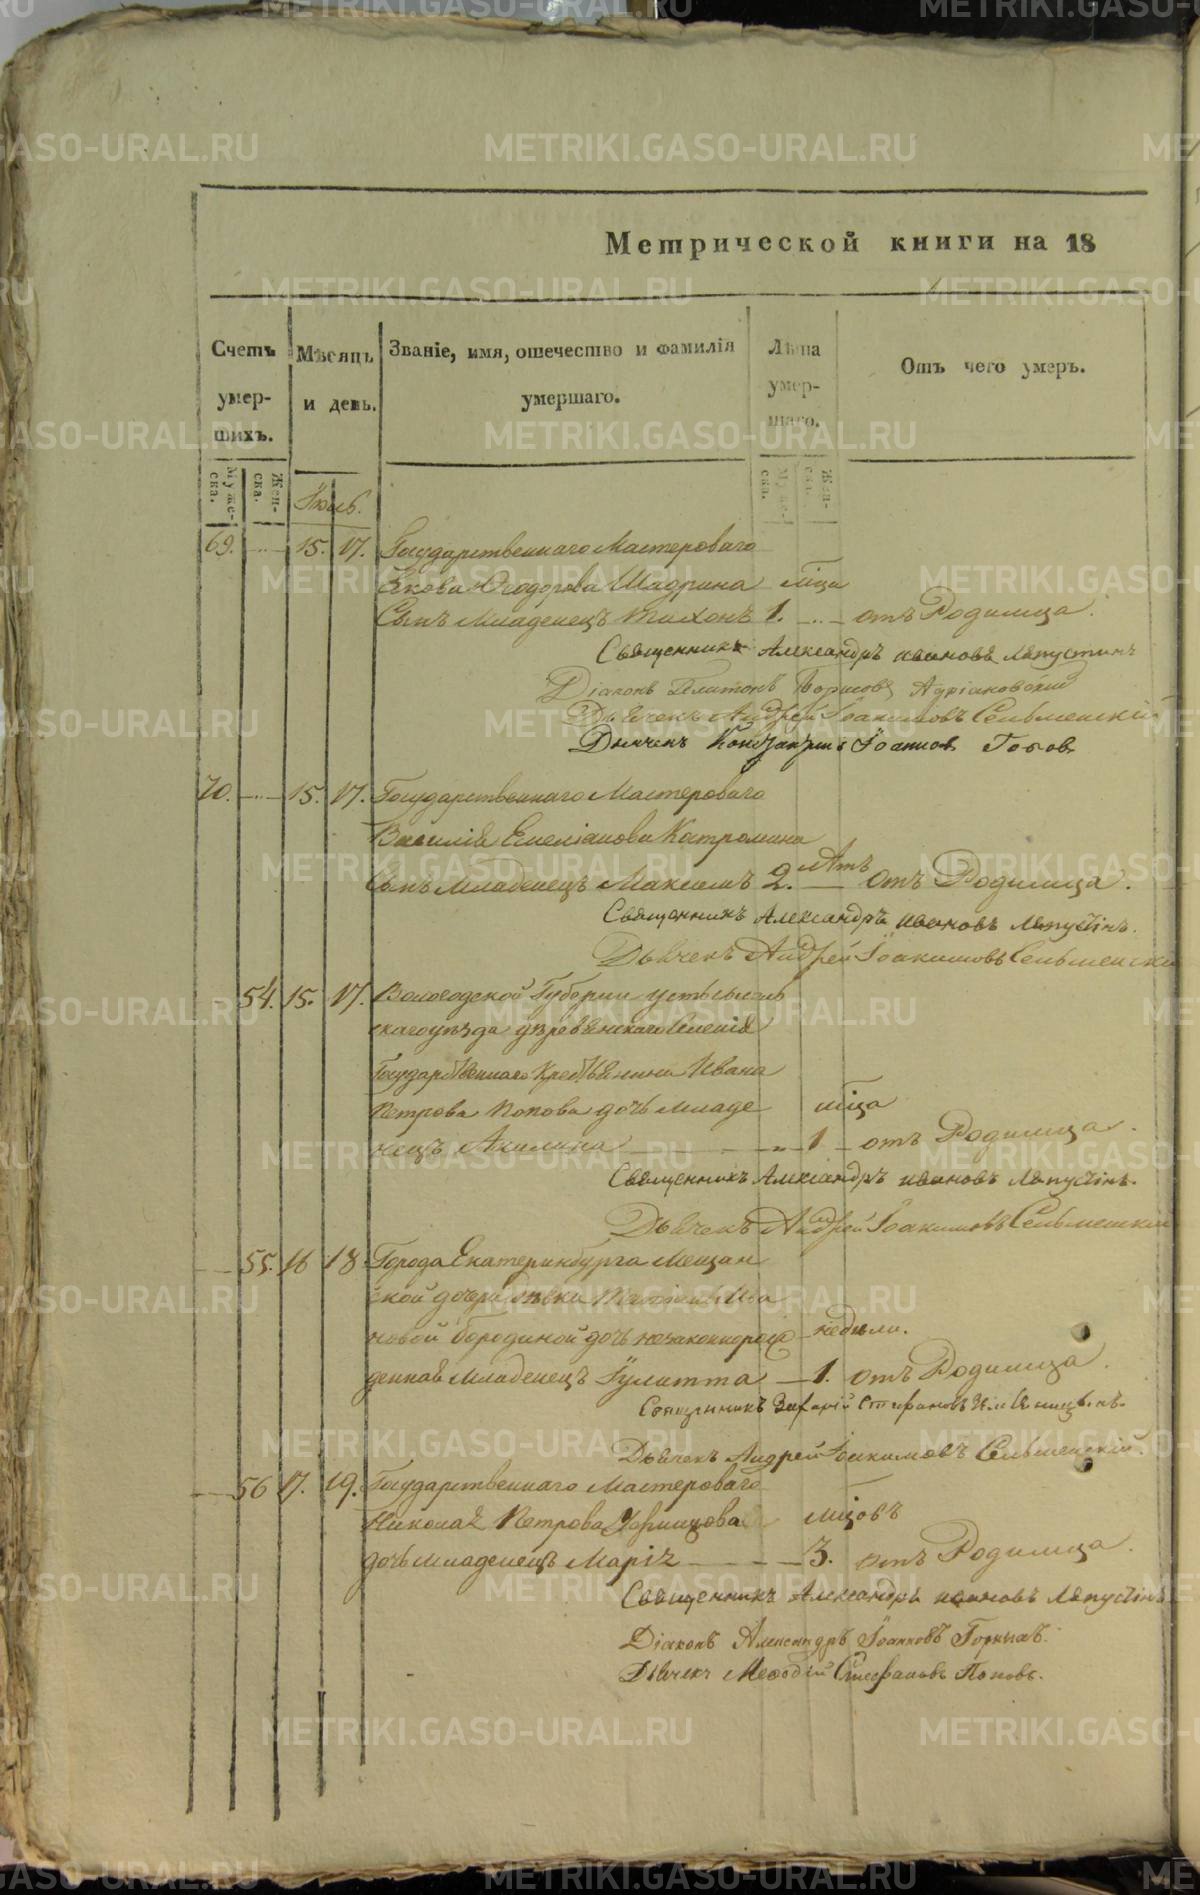 Метрической книги на 18
Счетъ умер- шихъ.
Мѣсяцъ и день.
Званіе, имя, отечество и фамилія умершаго.
Лѣта умер- шаго.
Отъ чего умеръ.
Муже- ска.
Жен- ска.
Муже- ска.
Жен- ска.
69. 15. 17. Государственнаго Мастероваго
Якова Ѳеодорова Шаорина мѣца
Сынъ Младенецъ Тихонъ 1. отъ Родимца.
Священникъ Александръ Ивановъ Ляпустинъ
Діаконъ Платонъ Борисовъ Адріановскій
Дьячекъ Андрей Іоакимовъ Сельменскій
Дьячекъ Іоанновъ
70. 15. 17. Государственнаго Мастероваго
Василія Емеліанова Катромина
Сынъ Младенецъ Максимъ 2. лѣтъ отъ Родимца.
Священникъ Александръ Ивановъ Ляпустинъ.
Дьячекъ Андрей Іоакимовъ Сельменскій
54. 15. 17. Вологодской Губерніи устьсысоль
скаго уѣзда деревянскаго Селенія
Государственнаго Крестьянина Ивана
Петрова Попова дочь младе мѣца
нецъ Акилина 1 отъ Родимца.
Священникъ Александръ Ивановъ Ляпустинъ.
Дьячекъ Андрей Іоакимовъ Сельменскій
55. 16 18. Города Екатеринбурга Мещан
ской дочери дѣвки
новой Бородиной дочь незаконнорож недѣли.
денная Младенецъ Іулитта 1. отъ Родимца.
Священникъ Захарій Стефановъ
Дьячекъ Андрей Іоакимовъ Сельменскій.
56 17. 19. Государственнаго Мастероваго
Николая Петрова мѣцовъ
дочь младенецъ Марія 3. отъ Родимца.
Священникъ Александръ Ивановъ Ляпустинъ
Діаконъ Александръ Іоанновъ
Дьячекъ Меѳодій Стефановъ Поповъ.
METRIKI.GASO-URAL.RU